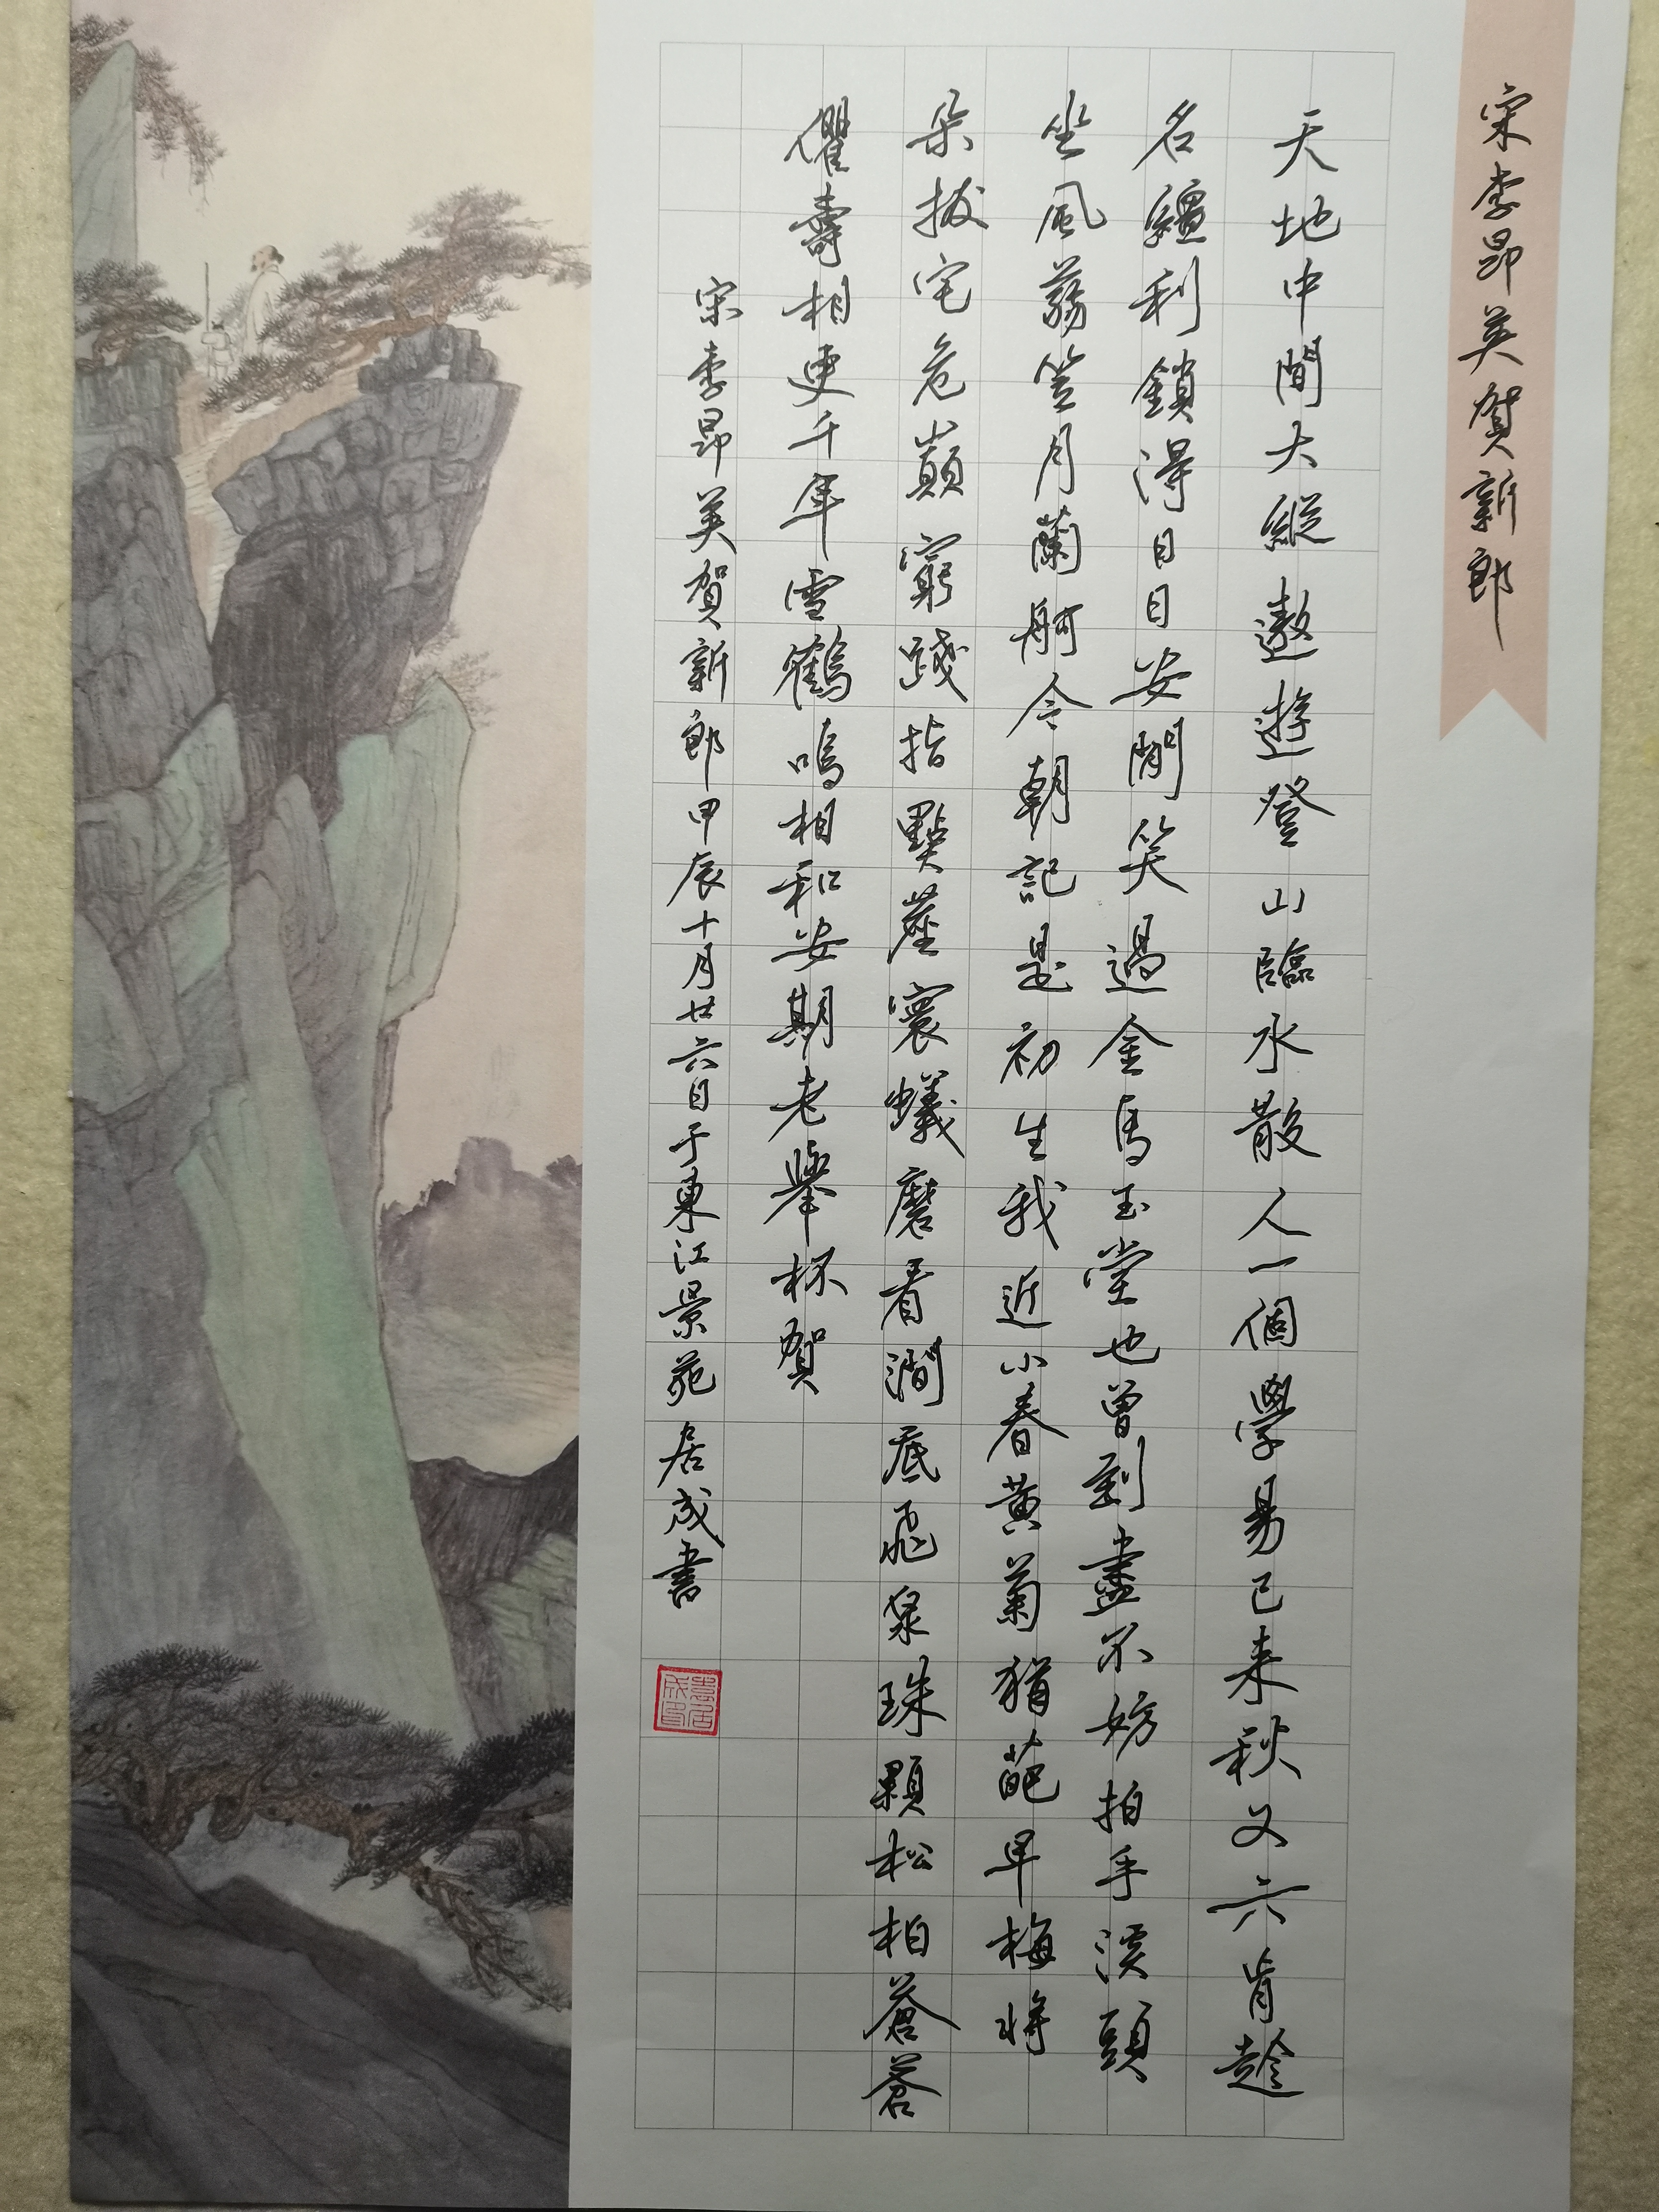 宋李昂英賀新郎
天地中間大縱遨遊登山臨水散人一個學易已来秋又六肯趁
名繮利鎖得日日安閒笑過金馬玉堂也曾到盡不妨拍手溪頭
坐風蓊笠月蘭舸今朝記是初生我近小春黃菊猶葩早梅将
朵拔宅危巔窮踐指點塵寰蟻磨看澗底飛泉珠顆松柏蒼蒼
臞壽相更千年雪鶴鳴相和安期老舉杯賀
宋李昂英賀新郎甲辰十月廿六日于東江景苑居成書